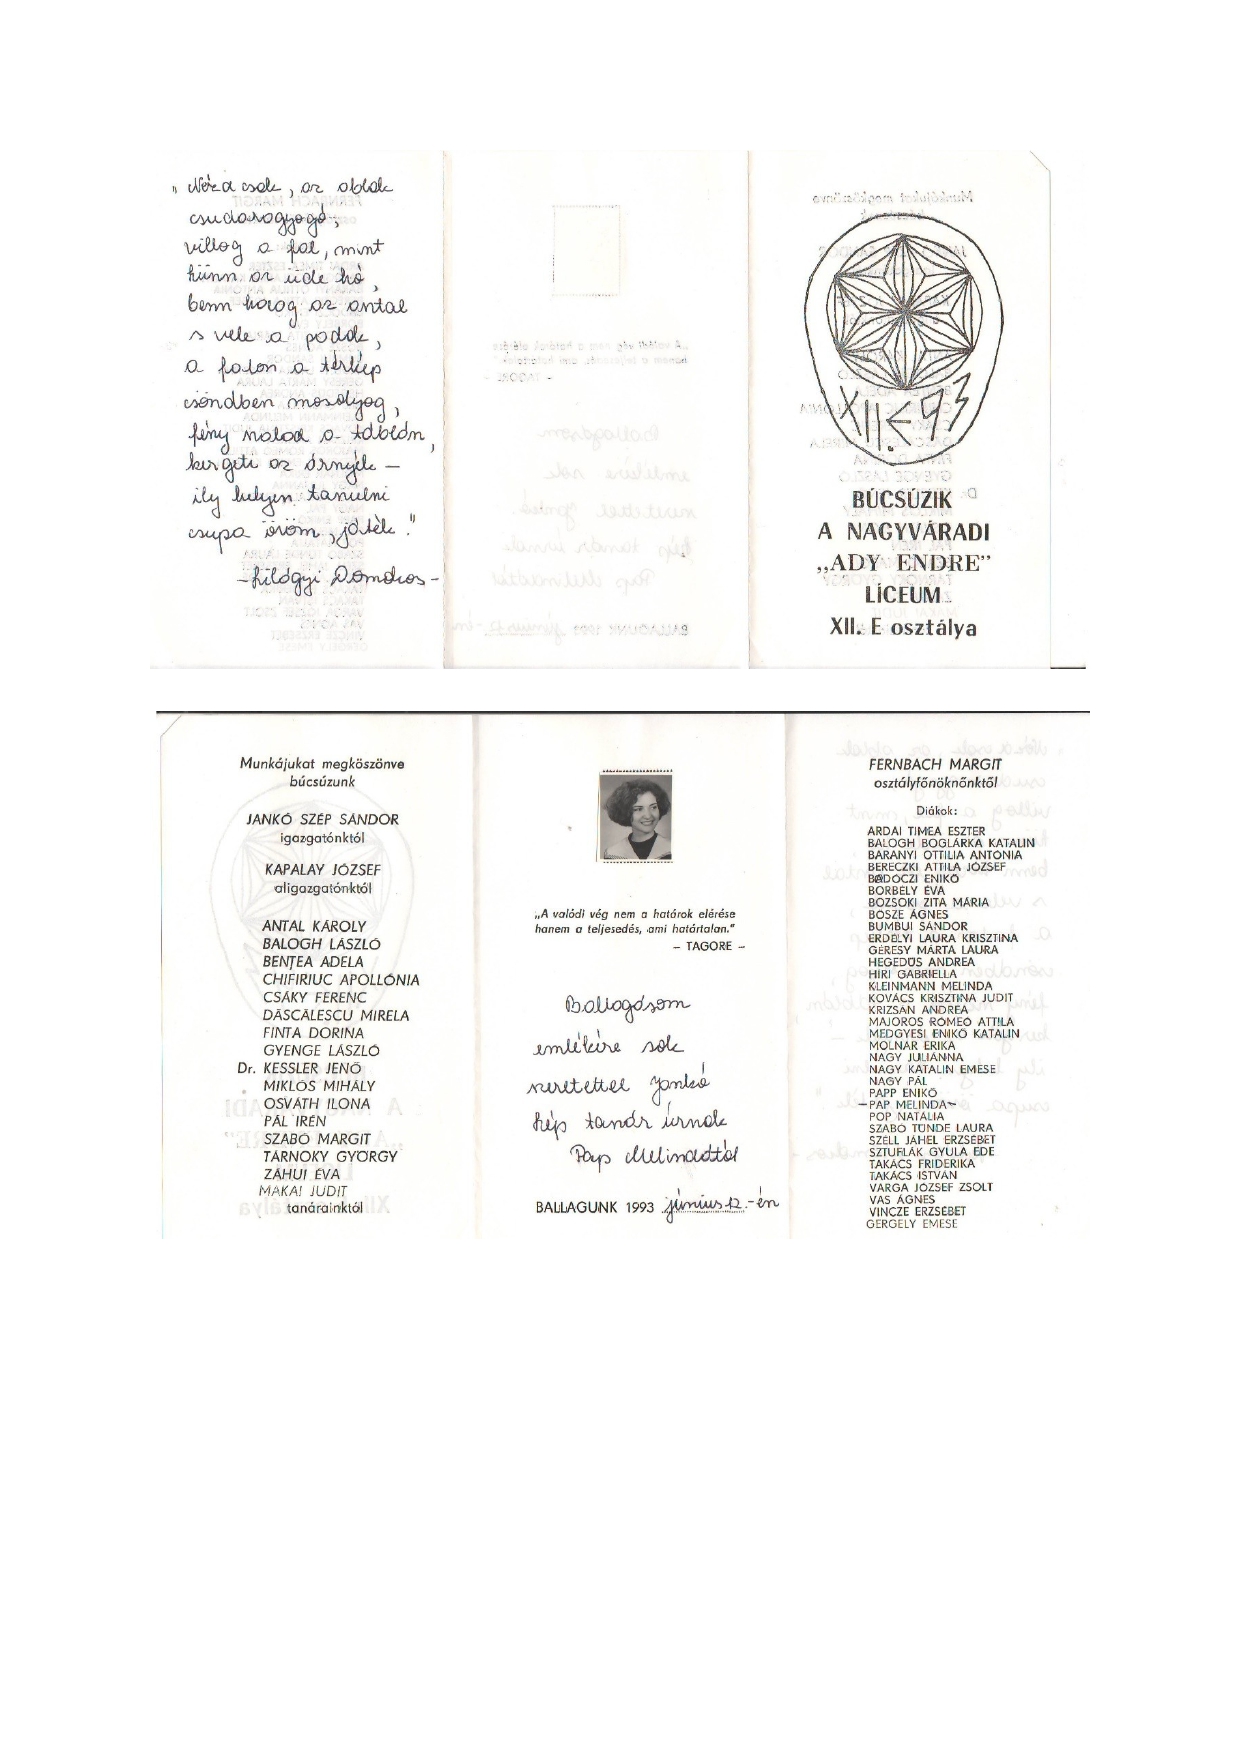 „Nézd csak, az ablak
csudaragyogó,
villog a fal, mint
künn az üde hó,
benn hozog az antal
s vele a padok,
a falon a térkép
csöndben mosolyog,
fény malad a táblán,
kergeti az árnyék –
ily helyen tanulni
csupa öröm, játék."
- Kilógyi Domokos -
XII. E 93
BÚCSÚZIK
A NAGYVÁRADI
„ADY ENDRE”
LÍCEUM
XII. E osztálya
Munkájukat megköszönve
búcsúzunk
JANKÓ SZÉP SÁNDOR
igazgatónktól
KAPALAY JÓZSEF
aligazgatónktól
ANTAL KÁROLY
BALOGH LÁSZLÓ
BENȚEA ADELA
CHIFIRIUC APOLLÓNIA
CSÁKY FERENC
DĂSCĂLESCU MIRELA
FINTA DORINA
GYENGE LÁSZLÓ
Dr. KESSLER JENŐ
MIKLÓS MIHÁLY
OSVÁTH ILONA
PÁL IRÉN
SZABÓ MARGIT
TÁRNOKY GYÖRGY
ZÁHUI ÉVA
MAKAI JUDIT
tanárainktól
„A valódi vég nem a határok elérése
hanem a teljesedés, ami határtalan.“
– TAGORE –
Ballagásom
emlékére sok
szeretettel Jankó
Szép tanár úrnak
Pap Melindától
BALLAGUNK 1993 június 12.-én
FERNBACH MARGIT
osztályfőnöknőnktől
Diákok:
ARDAI TIMEA ESZTER
BALOGH BOGLÁRKA KATALIN
BARANYI OTTILIA ANTONIA
BERECZKI ATTILA JÓZSEF
BODOCZI ENIKŐ
BORBÉLY ÉVA
BOZSOKI ZITA MÁRIA
BŐSZE ÁGNES
BUMBUI SÁNDOR
ERDÉLYI LAURA KRISZTINA
GÉRESY MÁRTA LAURA
HEGEDŰS ANDREA
HIRI GABRIELLA
KLEINMANN MELINDA
KOVÁCS KRISZTINA JUDIT
KRIZSÁN ANDREA
MAJOROS ROMEO ATTILA
MEDGYESI ENIKŐ KATALIN
MOLNÁR ERIKA
NAGY JULIÁNNA
NAGY KATALIN EMESE
NAGY PÁL
PAPP ENIKŐ
–PAP MELINDA–
POP NATÁLIA
SZABÓ TÜNDE LAURA
SZÉLL JÁHEL ERZSÉBET
SZTUFLÁK GYULA EDE
TAKÁCS FRIDERIKA
TAKÁCS ISTVÁN
VARGA JÓZSEF ZSOLT
VAS ÁGNES
VINCZE ERZSÉBET
GERGELY EMESE